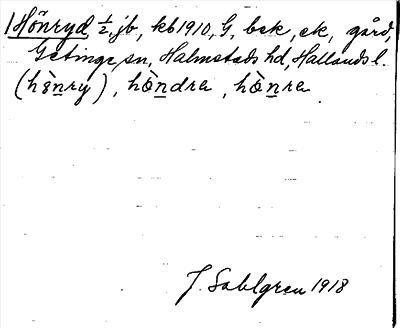 1 Hönryd ½, jb, kb 1910, G, bek, ek, gård,
Getinge sn, Halmstads hd, Hallands l.
(hènry), hòndra, hònra
J. Sahlgren 1918